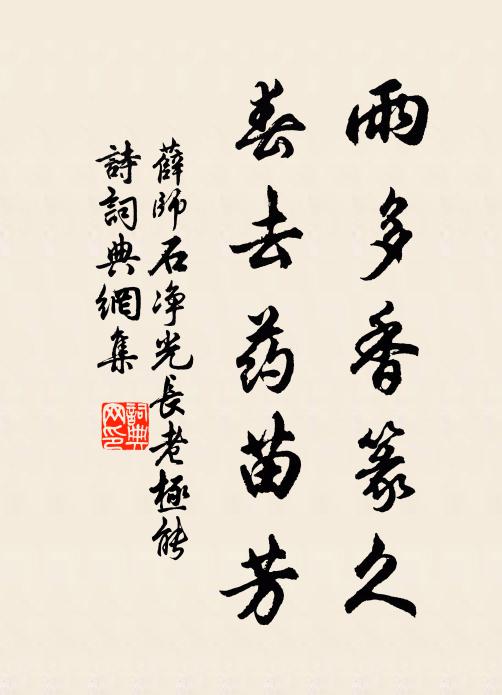 雨多香篆久
春去药苗芳
薛師石净光長老極能
詩詞典網集
詞典网印